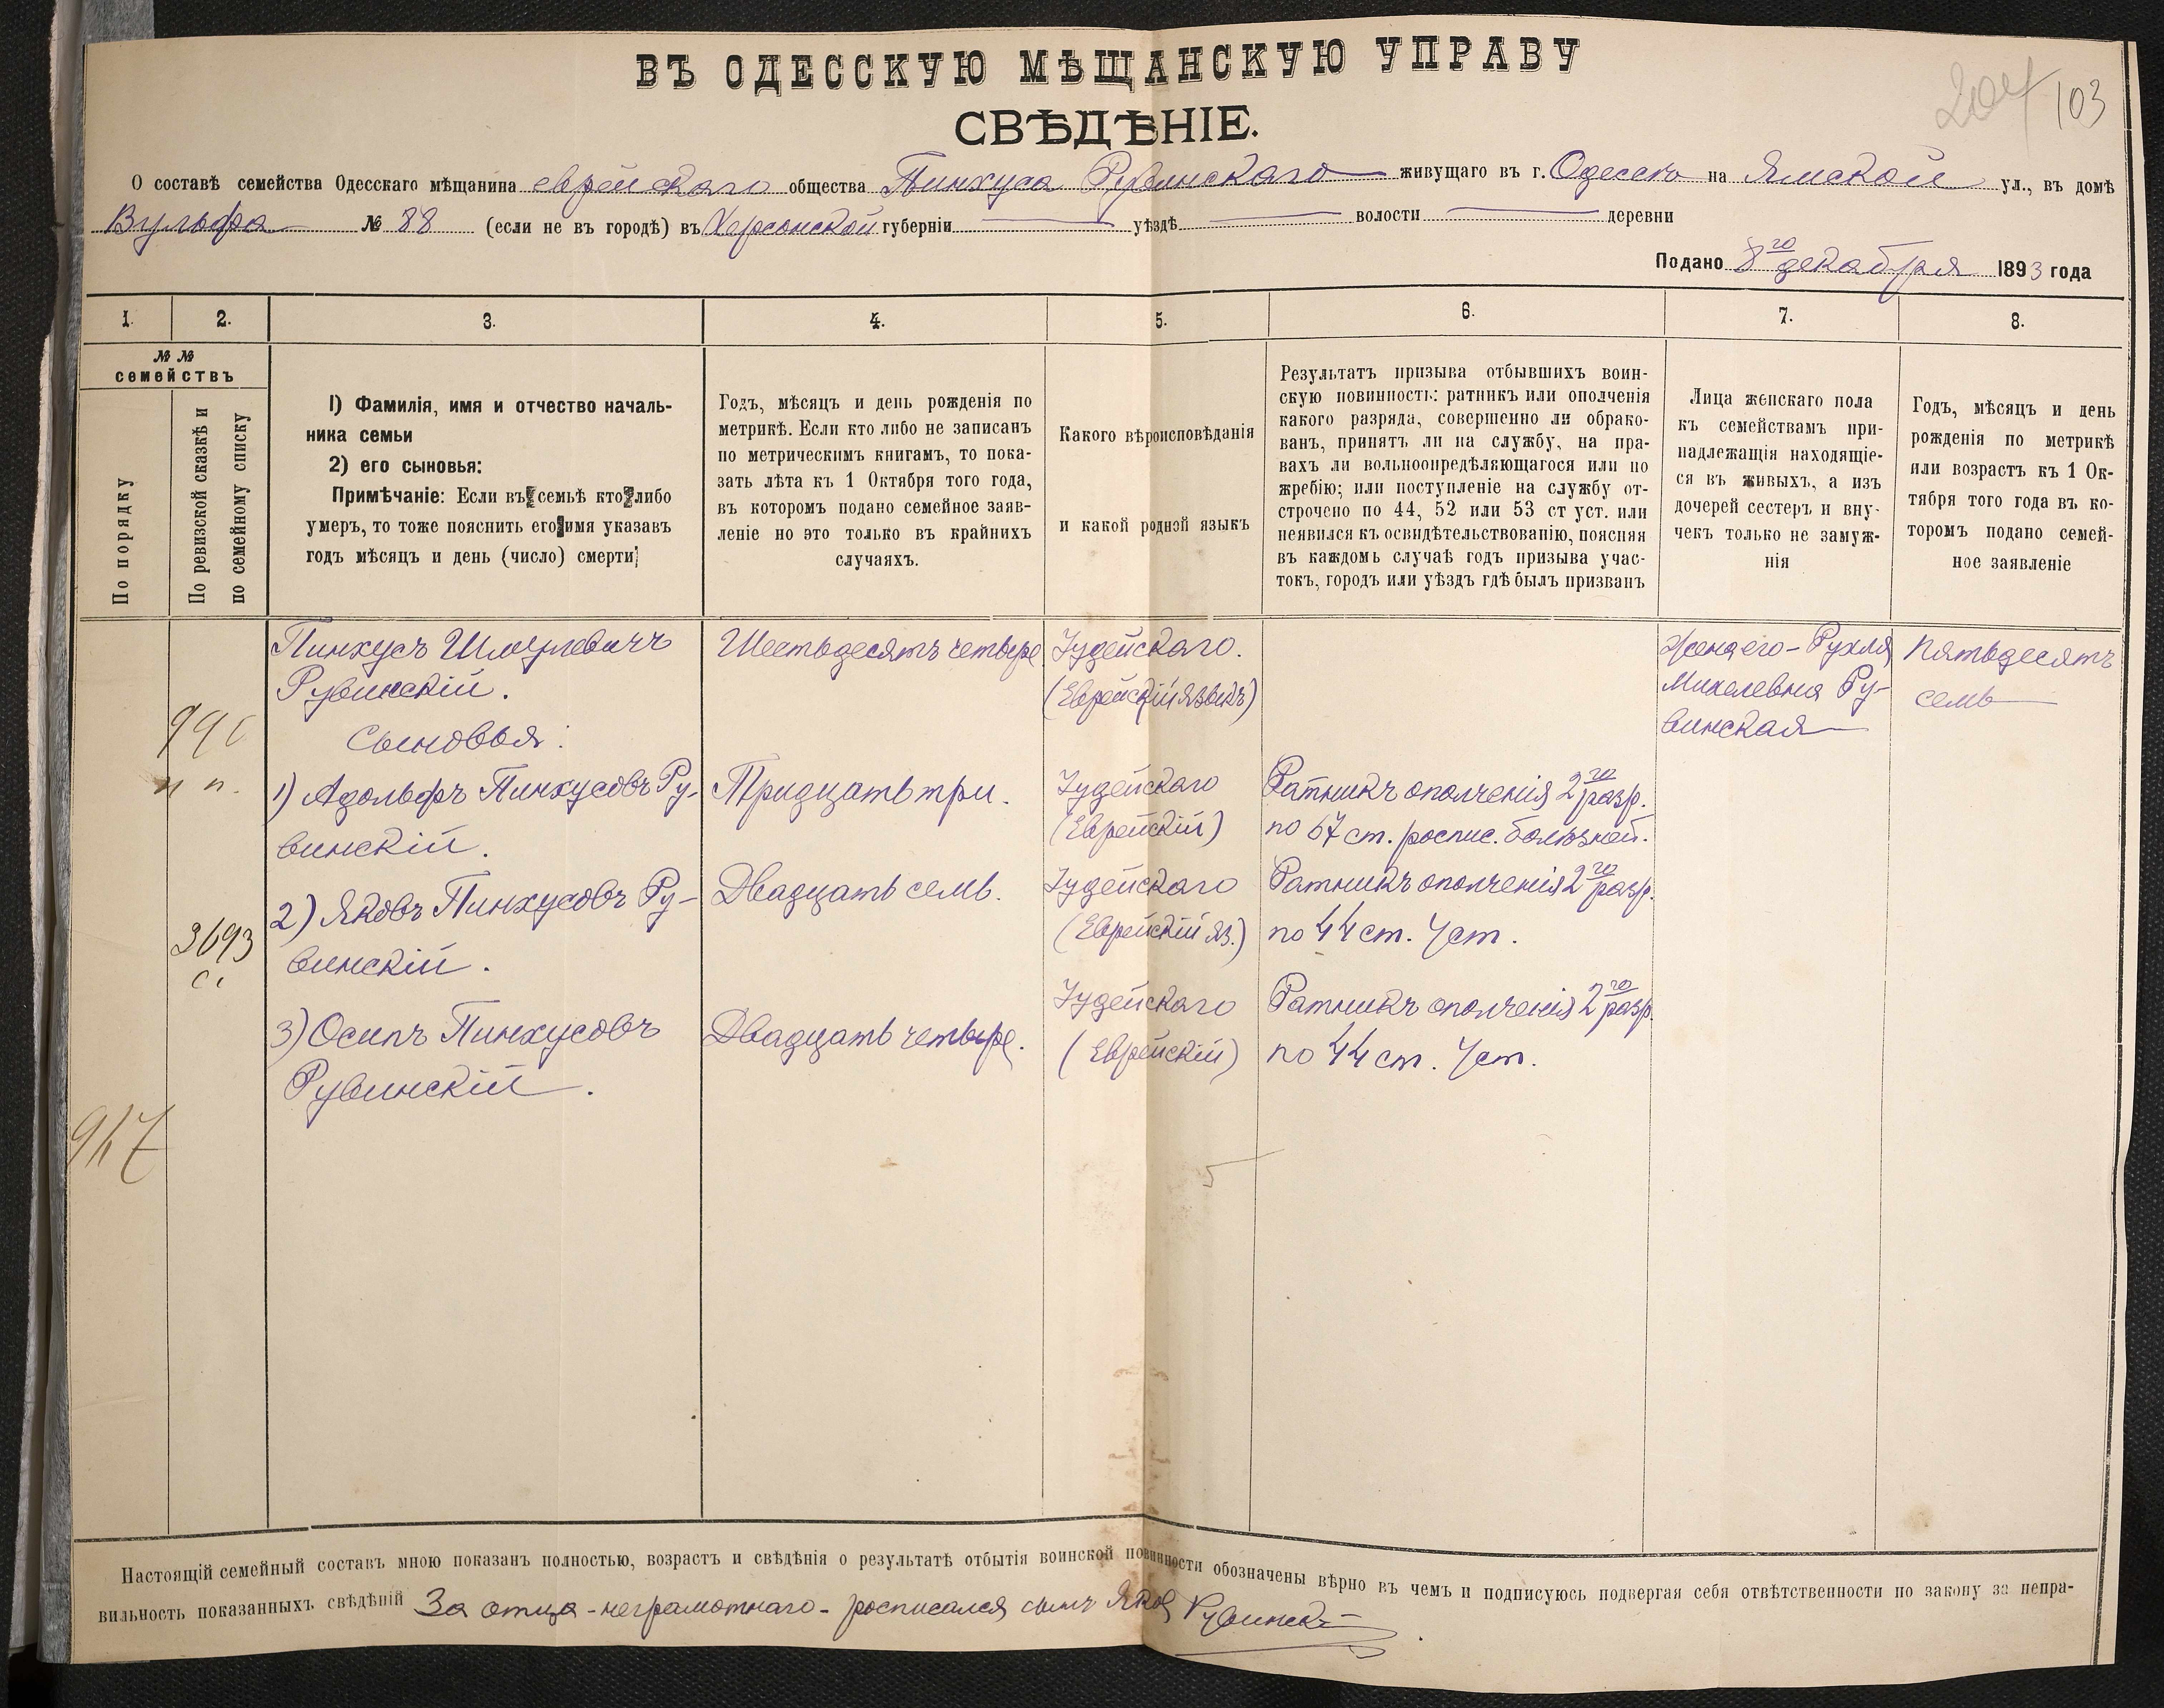 ВЪ ОДЕССКУЮ МѢЩАНСКУЮ УПРАВУ
СВѢДѢНІЕ.
103
О составѣ семейства Одесскаго мѣщанина еврейскаго общества Пинхуса Рувинскаго живущаго въ г. Одессѣ на Ямской ул., въ домѣ
Вульфа № 88 (если не въ городѣ) въ Херсонской губерніи уѣздѣ волости деревни
Подано 8го декабря 1893 года
1. 2. 3. 4. 5. 6. 7. 8.
№ №
семействъ
По порядку
По ревизской сказкѣ и
по семейному списку
1) Фамилія, имя и отчество началь-
ника семьи
2) его сыновья:
Примѣчаніе: Если въ семьѣ кто либо
умеръ, то тоже пояснить его имя указавъ
годъ мѣсяцъ и день (число) смерти
Годъ, мѣсяцъ и день рожденія по
метрикѣ. Если кто либо не записанъ
по метрическимъ книгамъ, то пока-
зать лѣта къ 1 Октября того года,
въ которомъ подано семейное заяв-
леніе но это только въ крайнихъ
случаяхъ.
Какого вѣроисповѣданія
и какой родной языкъ
Результатъ призыва отбывшихъ воин-
скую повинность: ратникъ или ополченія
какого разряда, совершенно ли обрако-
ванъ, принятъ ли на службу, на пра-
вахъ ли вольноопредѣляющагося или по
жребію; или поступленіе на службу от-
строчено по 44, 52 или 53 ст уст. или
неявился къ освидѣтельствованію, поясняя
въ каждомъ случаѣ годъ призыва учас-
токъ, городъ или уѣздъ гдѣ былъ призванъ
Лица женскаго пола
къ семействамъ при-
надлежащія находящіе-
ся въ живыхъ, а изъ
дочерей сестеръ и вну-
чекъ только не замуж-
нія
Годъ, мѣсяцъ и день
рожденія по метрикѣ
или возрастъ къ 1 Ок-
тября того года въ ко-
торомъ подано семей-
ное заявленіе
Пинхусъ Шмулевичъ
Рувинскій.
Шестьдесятъ четыре
Іудейскаго.
(Еврейскій языкъ)
Жена его - Рухля
Михелевна Ру-
винская
Пятьдесятъ
семь
Сыновья:
1) Адольфъ Пинхусовъ Ру-
винскій.
Тридцать три.
Іудейскаго
(Еврейскій)
Ратникъ ополченія 2го разр.
по 67 ст. роспис. болѣзней.
2) Яковъ Пинхусовъ Ру-
винскій.
Двадцать семь.
Іудейскаго
(Еврейскій яз.)
Ратникъ ополченія 2го разр.
по 44 ст. Уст.
3693
3) Осипъ Пинхусовъ
Рувинскій.
Двадцать четыре.
Іудейскаго
(Еврейскій)
Ратникъ ополченія 2го разр.
по 44 ст. Уст.
Настоящій семейный составъ мною показанъ полностью, возрастъ и свѣдѣнія о результатѣ отбытія воинской повинности обозначены вѣрно въ чемъ и подписуюсь подвергая себя отвѣтственности по закону за непра-
вильность показанныхъ свѣдѣній За отца - неграмотнаго - росписался сынъ Яков Рувинскі